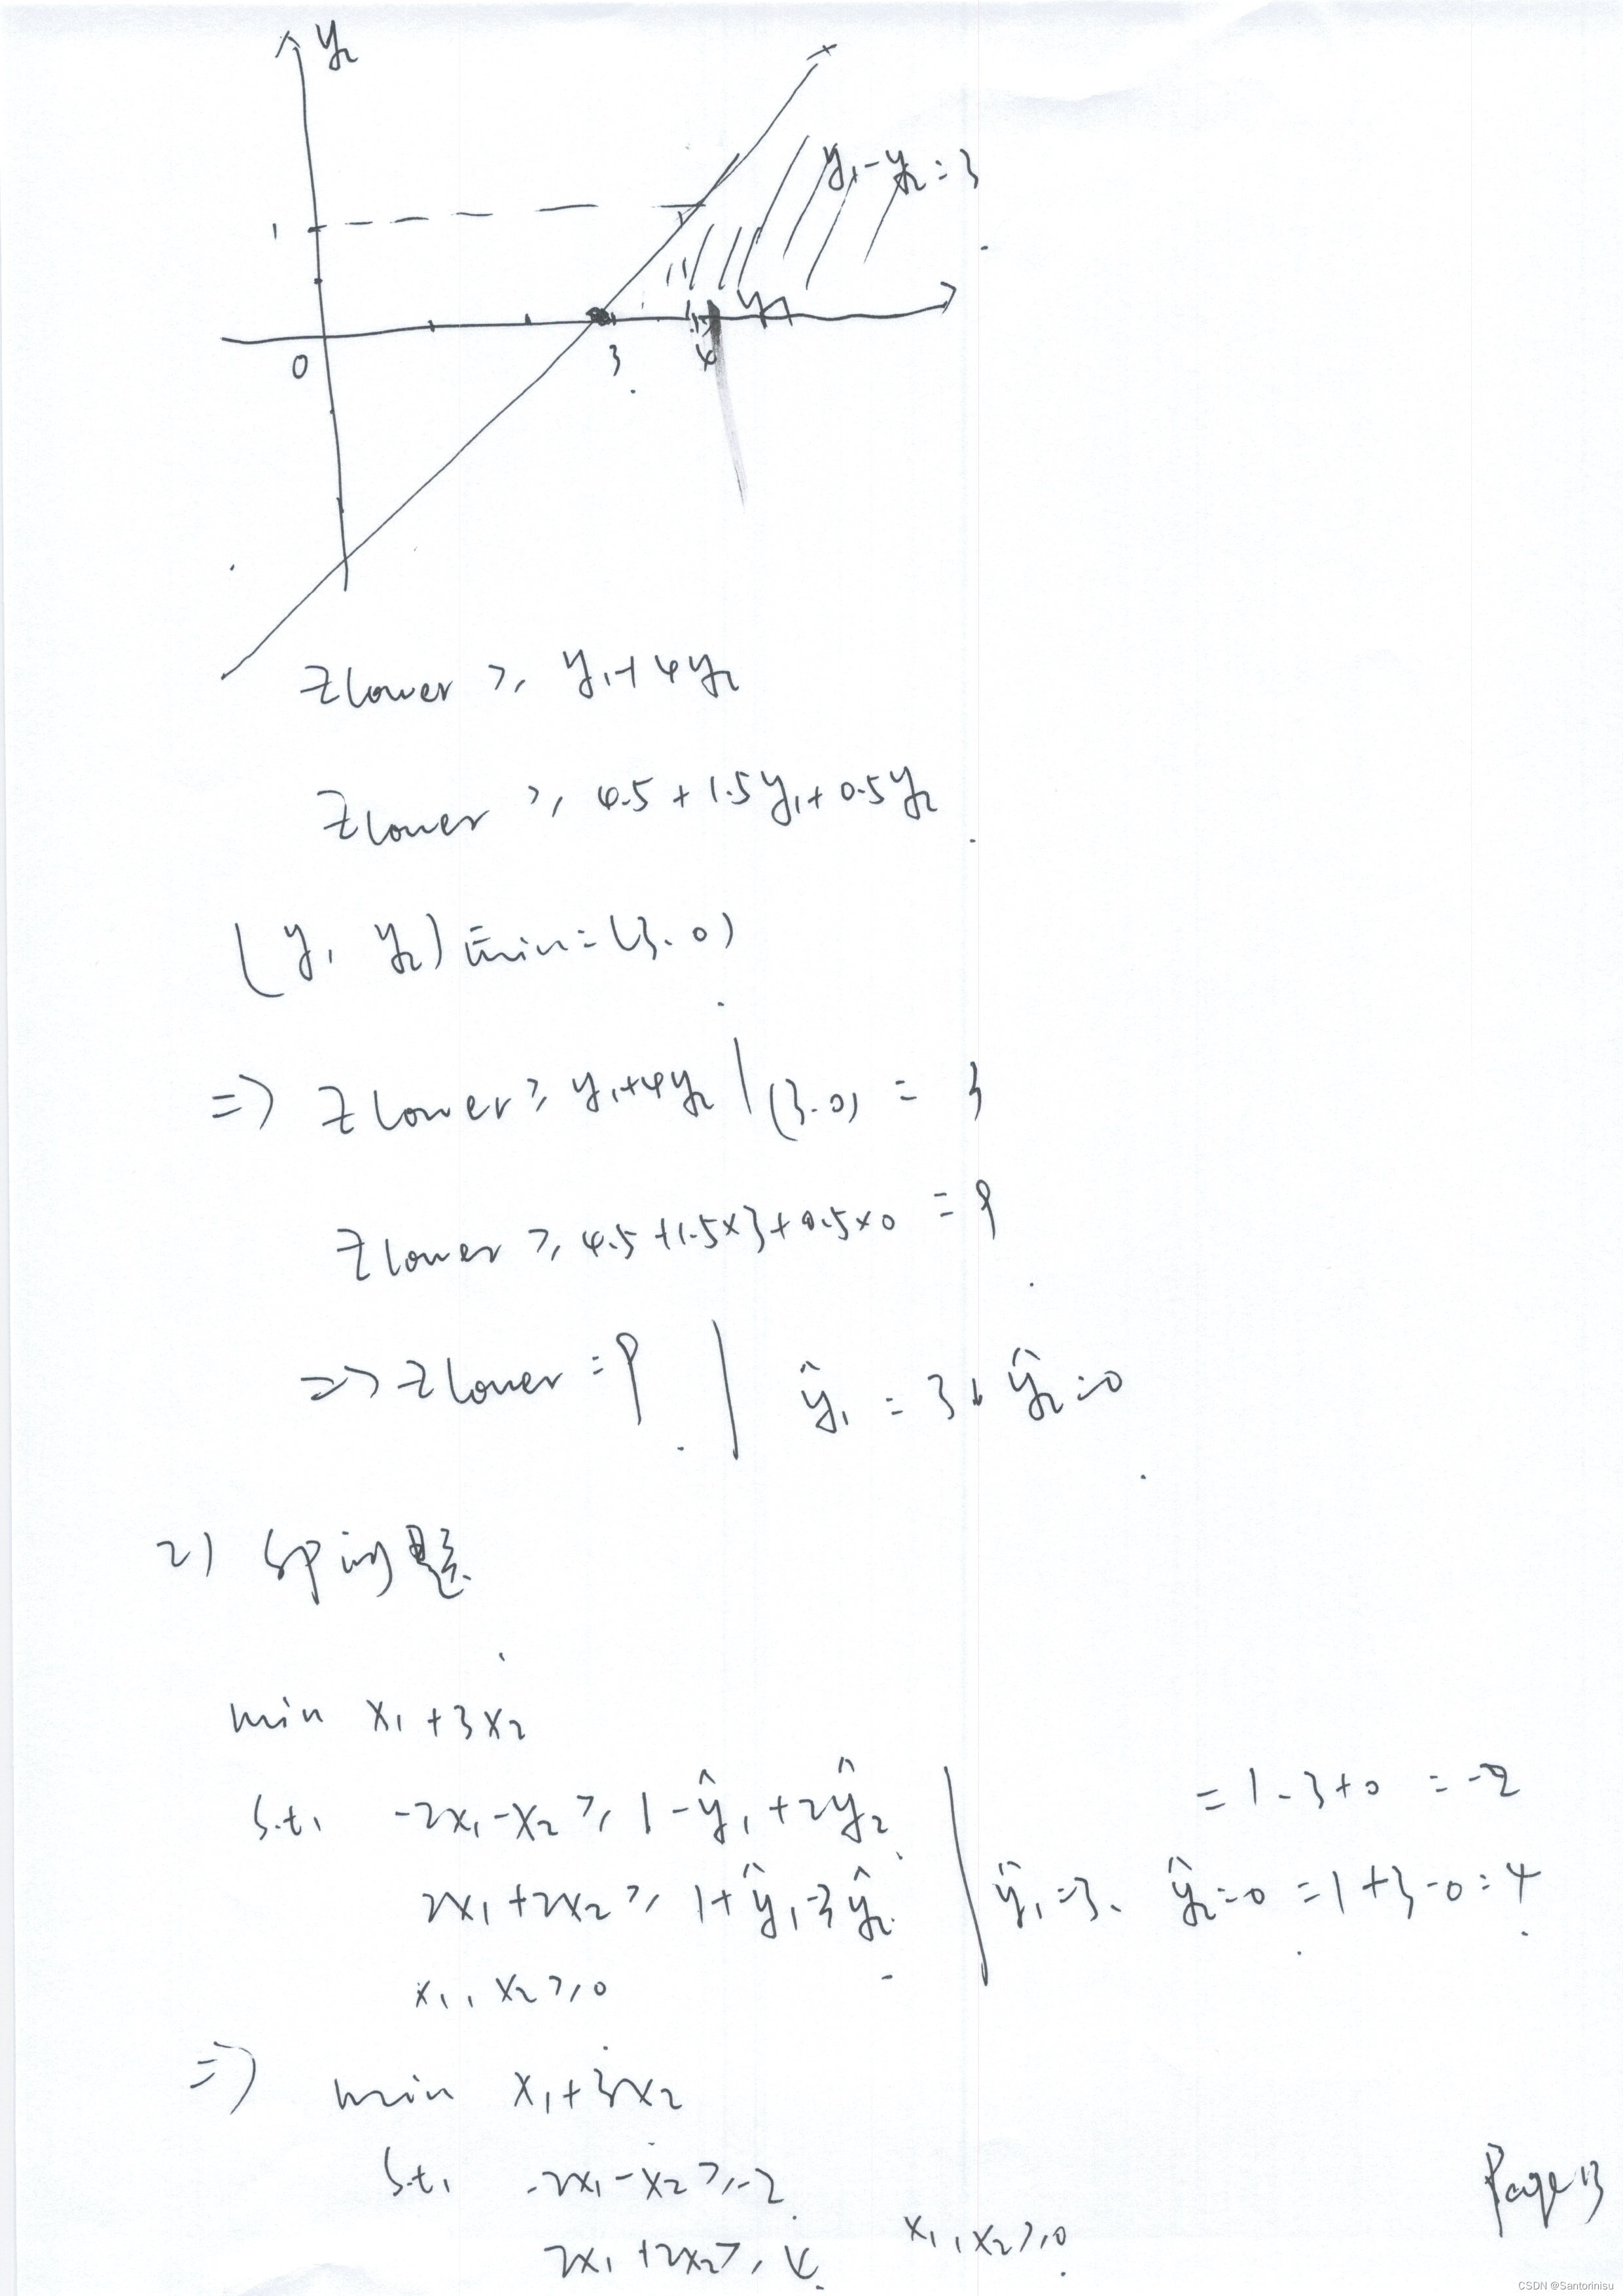 y₂
y₁-y₂=3
1
y₁
0 3 4
Zlower ≥ y₁+4y₂
Zlower ≥ 4.5+1.5y₁+0.5y₂
(y₁ y₂)min=(3.0)
=> Zlower ≥ y₁+4y₂ |(3.0) = 3
Zlower ≥ 4.5+1.5×3+0.5×0 = 9
=> Zlower = 9 | ŷ₁ = 3, ŷ₂=0
2) SP问题
min x₁+3x₂
s.t. -2x₁-x₂ ≥ 1-ŷ₁+2ŷ₂ | =1-3+0 =-2
2x₁+2x₂ ≥ 1+ŷ₁-3ŷ₂ | ŷ₁=3、ŷ₂=0 =1+3-0=4
x₁, x₂ ≥ 0
=> min x₁+3x₂
s.t. -2x₁-x₂ ≥ -2
2x₁+2x₂ ≥ 4 x₁, x₂ ≥ 0
Page 13
CSDN @Santorinisu